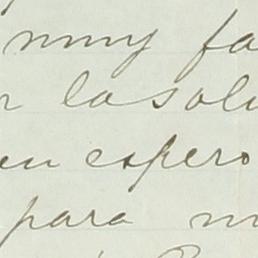 muy fa
la solu
en espero
para m